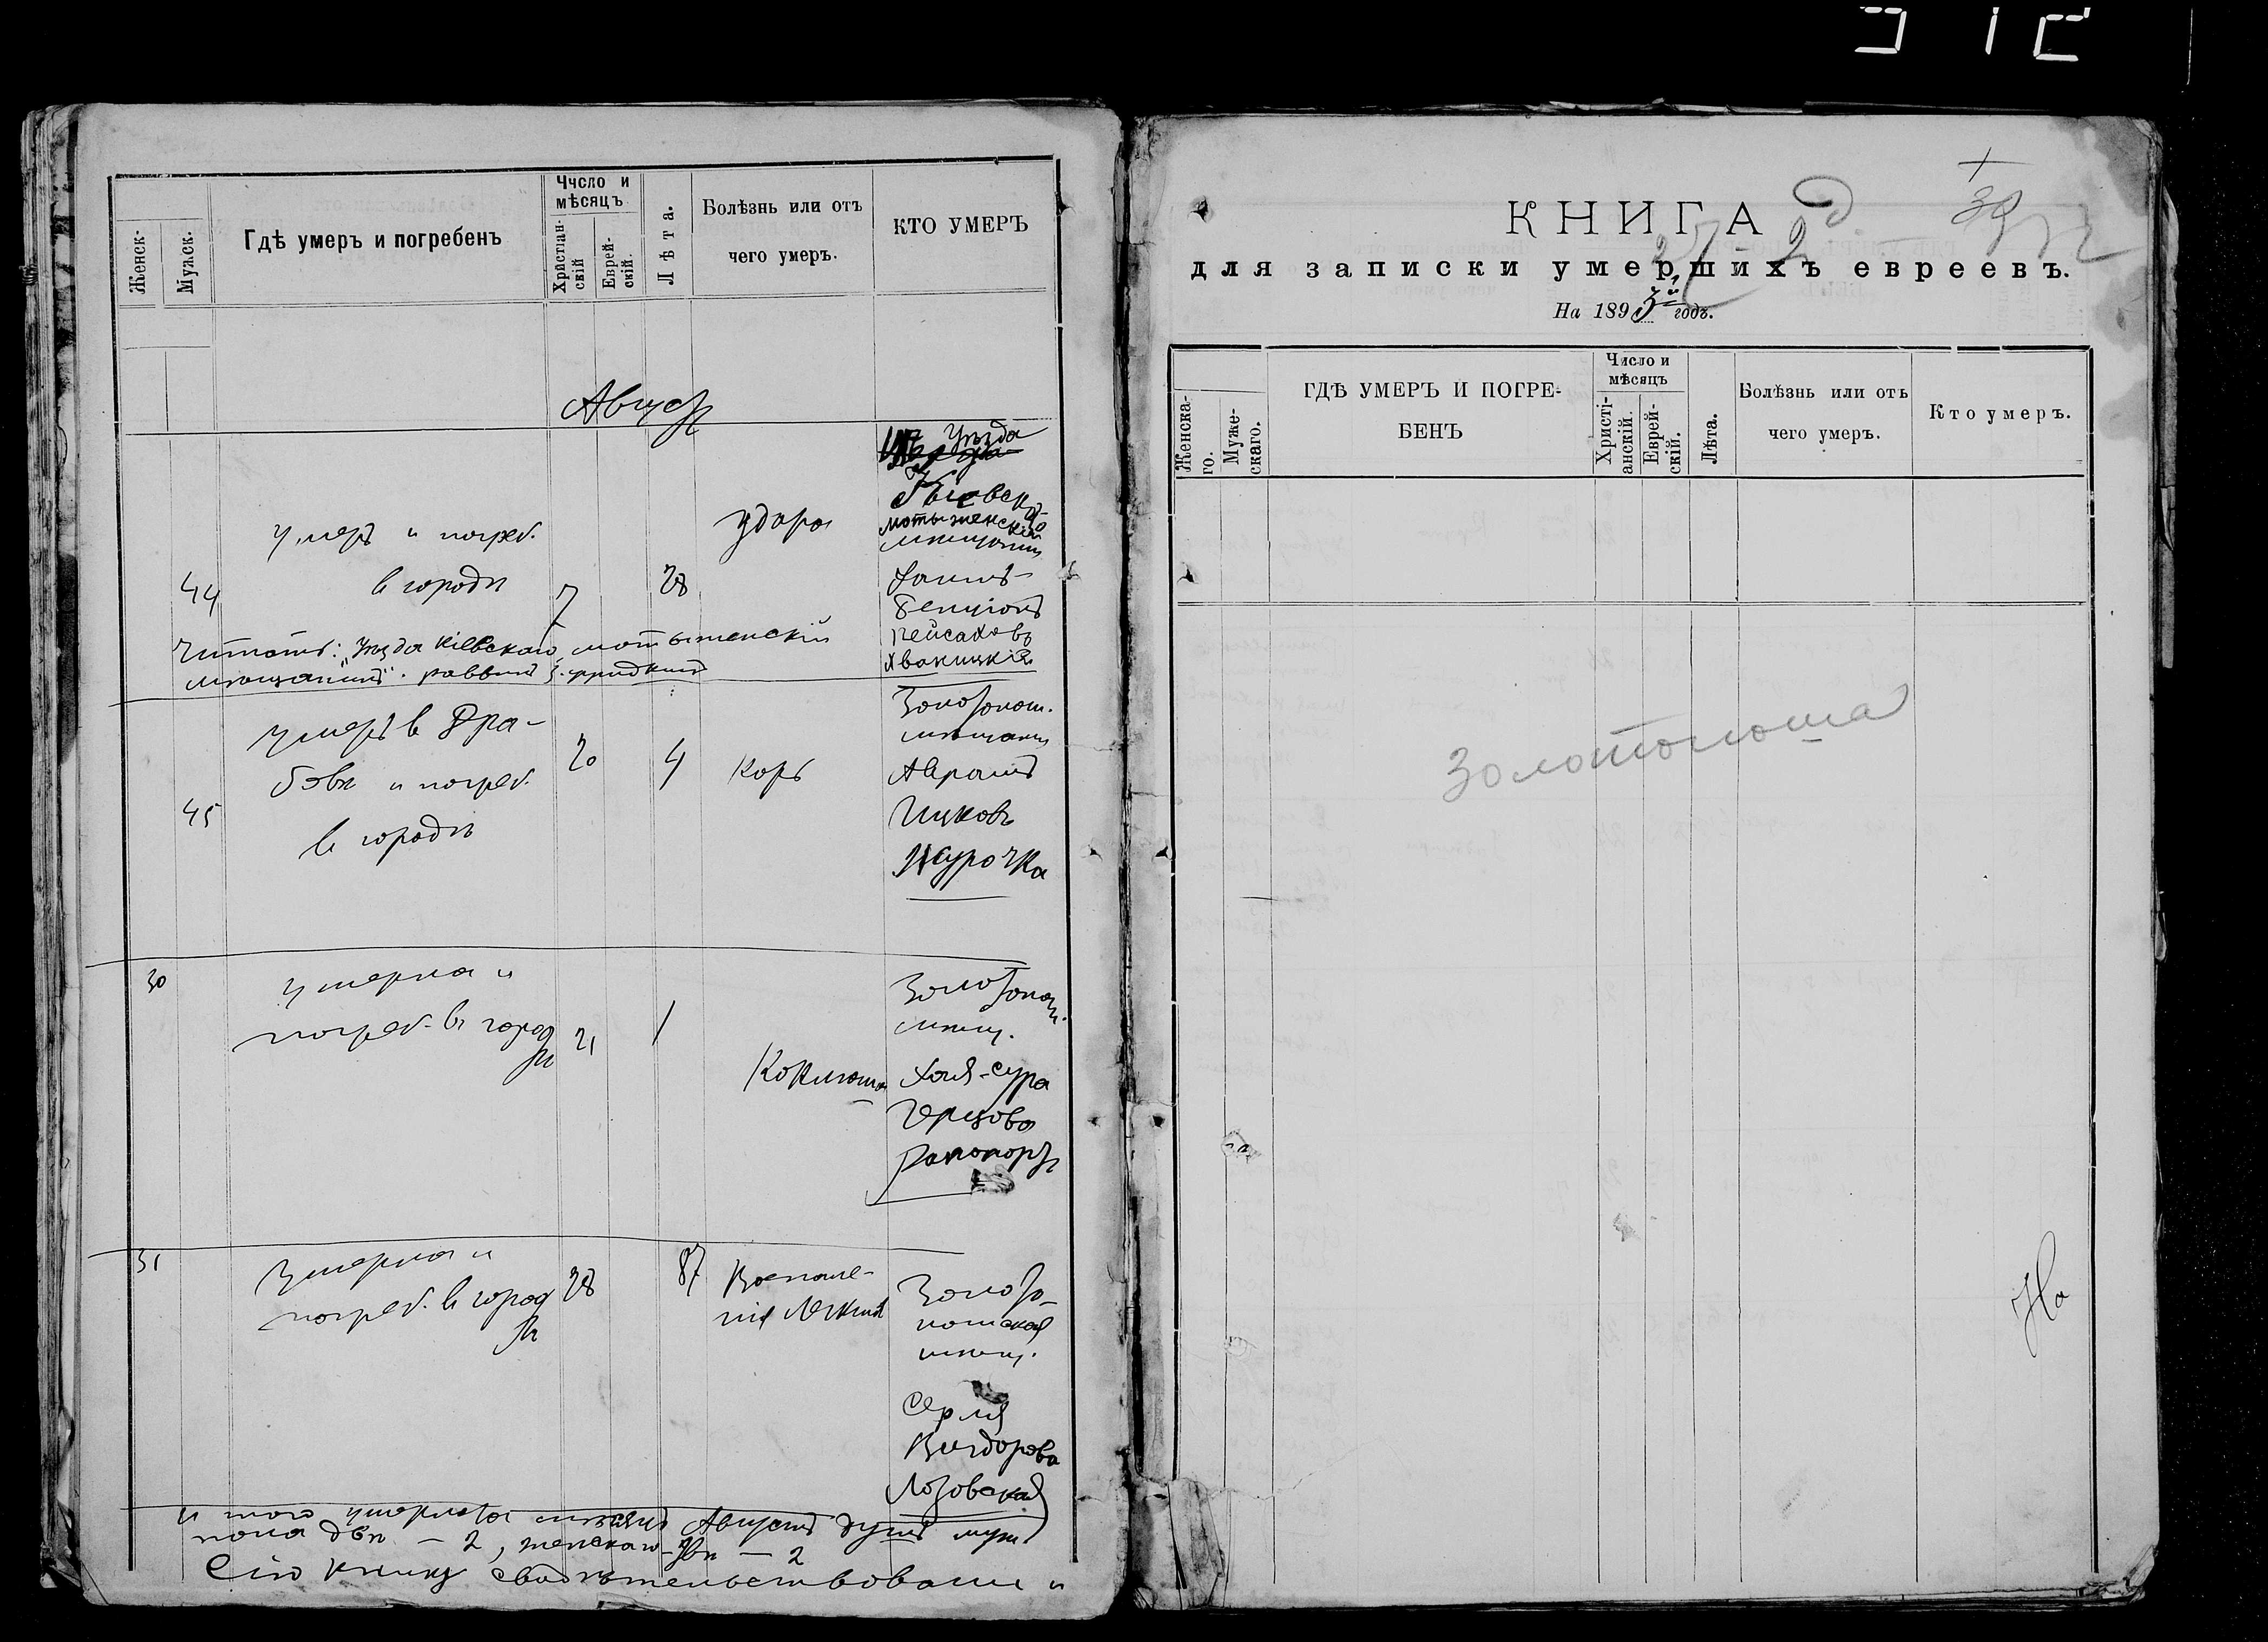 Женск.
Мужск.
Гдѣ умеръ и погребенъ
Число и
мѣсяцъ
Христіан-
скій
Еврей-
скій.
Лѣта.
Болѣзнь или отъ
чего умеръ.
КТО УМЕРЪ
Август
уѣзда
Кіевскаго
мотыженскій
мѣщанинъ
умеръ и погреб.
въ городѣ
44
7
28
удара
Бенціонъ
Пейсаховъ
Хвакицкій
Читать: "Уѣзда Кіевскаго, мотыженскій
мѣщанинъ". раввинъ
45
умеръ въ Дра-
бовѣ и погреб.
въ городѣ
20
4
Корь
Золотонош.
мѣщанин
Аврамъ
Ицковъ
Курочка
30
умерла и
погреб. въ город
ѣ
21
1
Коклюша
Золотонош.
мѣщ.
Хая-Сура
Герцова
Рапопорт
31
Умерла и
погреб. въ город
ѣ
28
87
Воспале-
ніе легкихъ
Золото-
ношская
мѣщ.
Серля
Вигдорова
Лозовская
Итого умерло мѣсяцѣ Августѣ душъ муж
пола двѣ - 2, женскаго двѣ - 2
Сію книгу свидѣтельствовали и
КНИГА
для записки умершихъ евреевъ.
На 1893й годъ.
Женска-
го.
Муже-
скаго.
ГДѢ УМЕРЪ И ПОГРЕ-
БЕНЪ
Число и
мѣсяцъ
Христі-
анскій.
Еврей-
скій.
Лѣта.
Болѣзнь или отъ
чего умеръ.
Кто умеръ.
Золотоноша
На